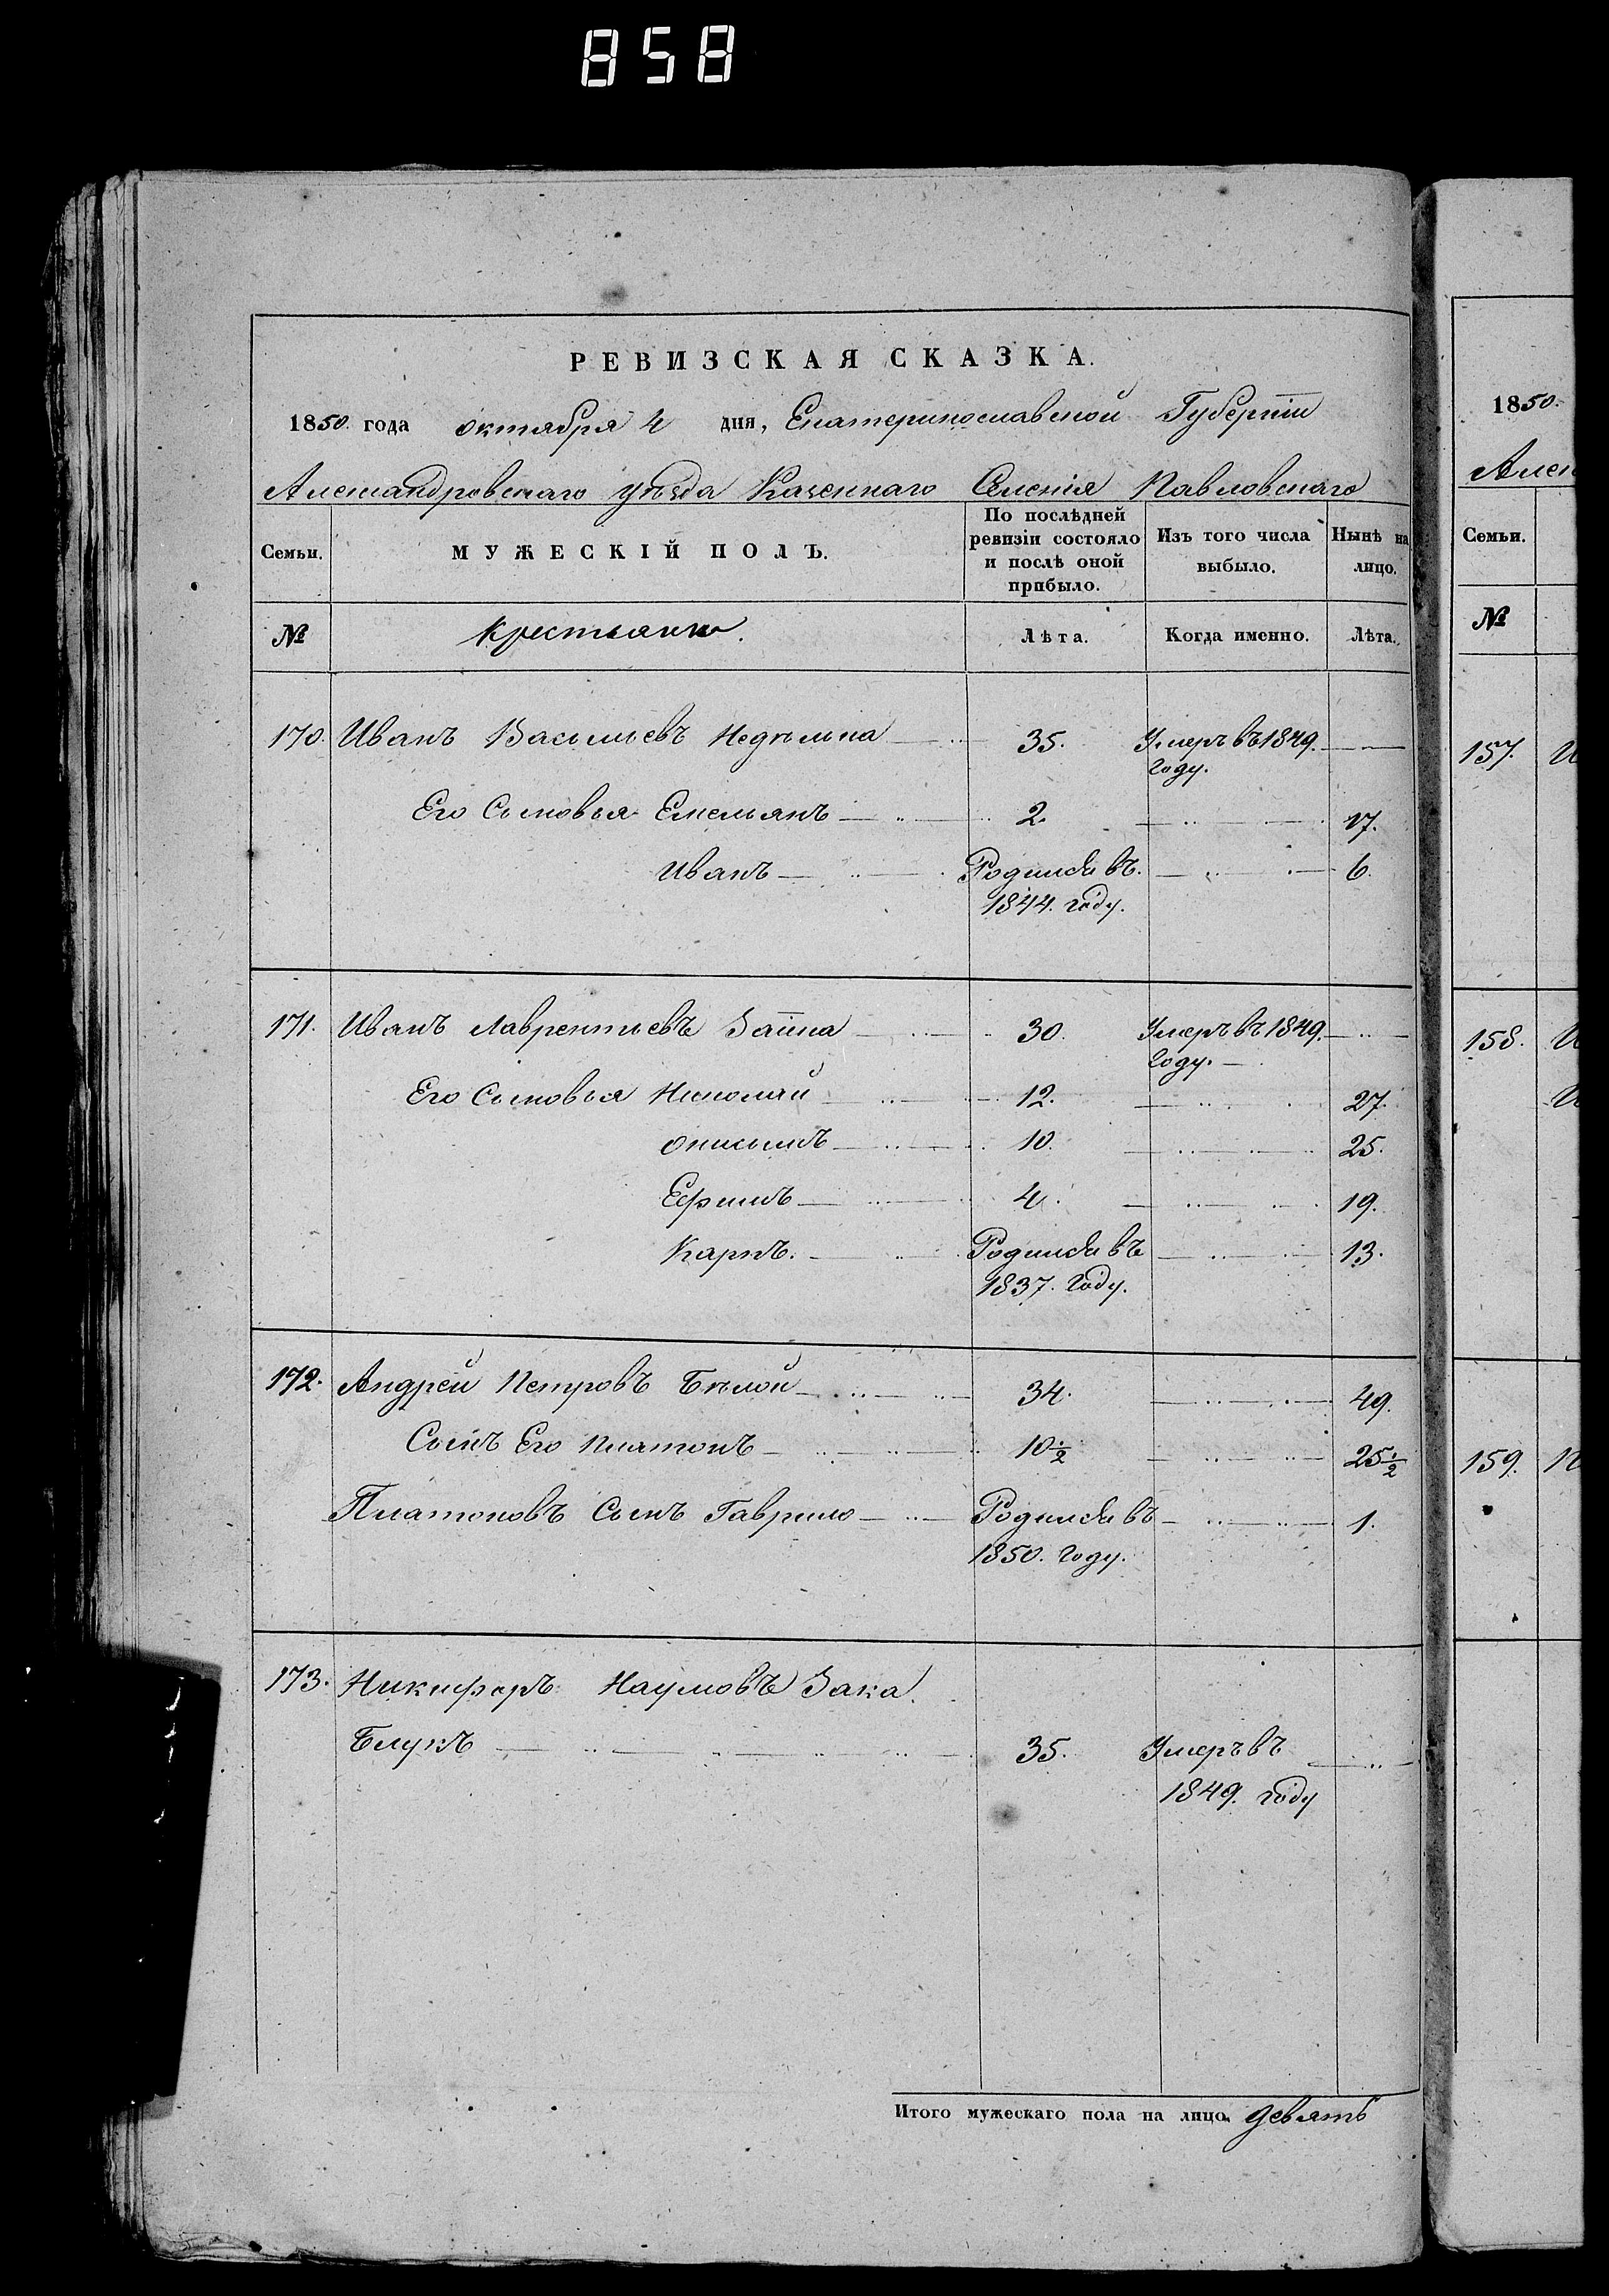 858
РЕВИЗСКАЯ СКАЗКА.
1850. года октября 4 дня, Екатеринославской Губерніи
Александровскаго уѣзда Казеннаго Селенія Павловскаго
Семьи. МУЖЕСКІЙ ПОЛЪ. По послѣдней ревизіи состояло и послѣ оной прибыло. Изъ того числа выбыло. Нынѣ на лицо.
№ крестьяне. Лѣта. Когда именно. Лѣта.
170. Иванъ Васильевъ Недѣлька 35. Умеръ въ 1849.
году.
Его Сыновья Емельянъ 2. 17.
Иванъ Родился въ. 6.
1844. году.
171. Иванъ Лаврентьевъ Заика 30. Умеръ въ 1849.
году.
Его Сыновья Николай 12. 27.
Онисимъ 10. 25.
Ефимъ 4. 19.
Карпъ. Родился въ 13.
1837. году.
172. Андрей Петровъ Бѣлой 34. 49.
Сынъ Его Платонъ 10 1/2 25 1/2
Платоновъ Сынъ Гаврило Родился въ 1.
1850. году.
173. Никифоръ Наумовъ Зака
Блукъ 35. Умеръ въ
1849. году
Итого мужескаго пола на лицо. девять
1850.
Семьи.
№
157.
158.
159.